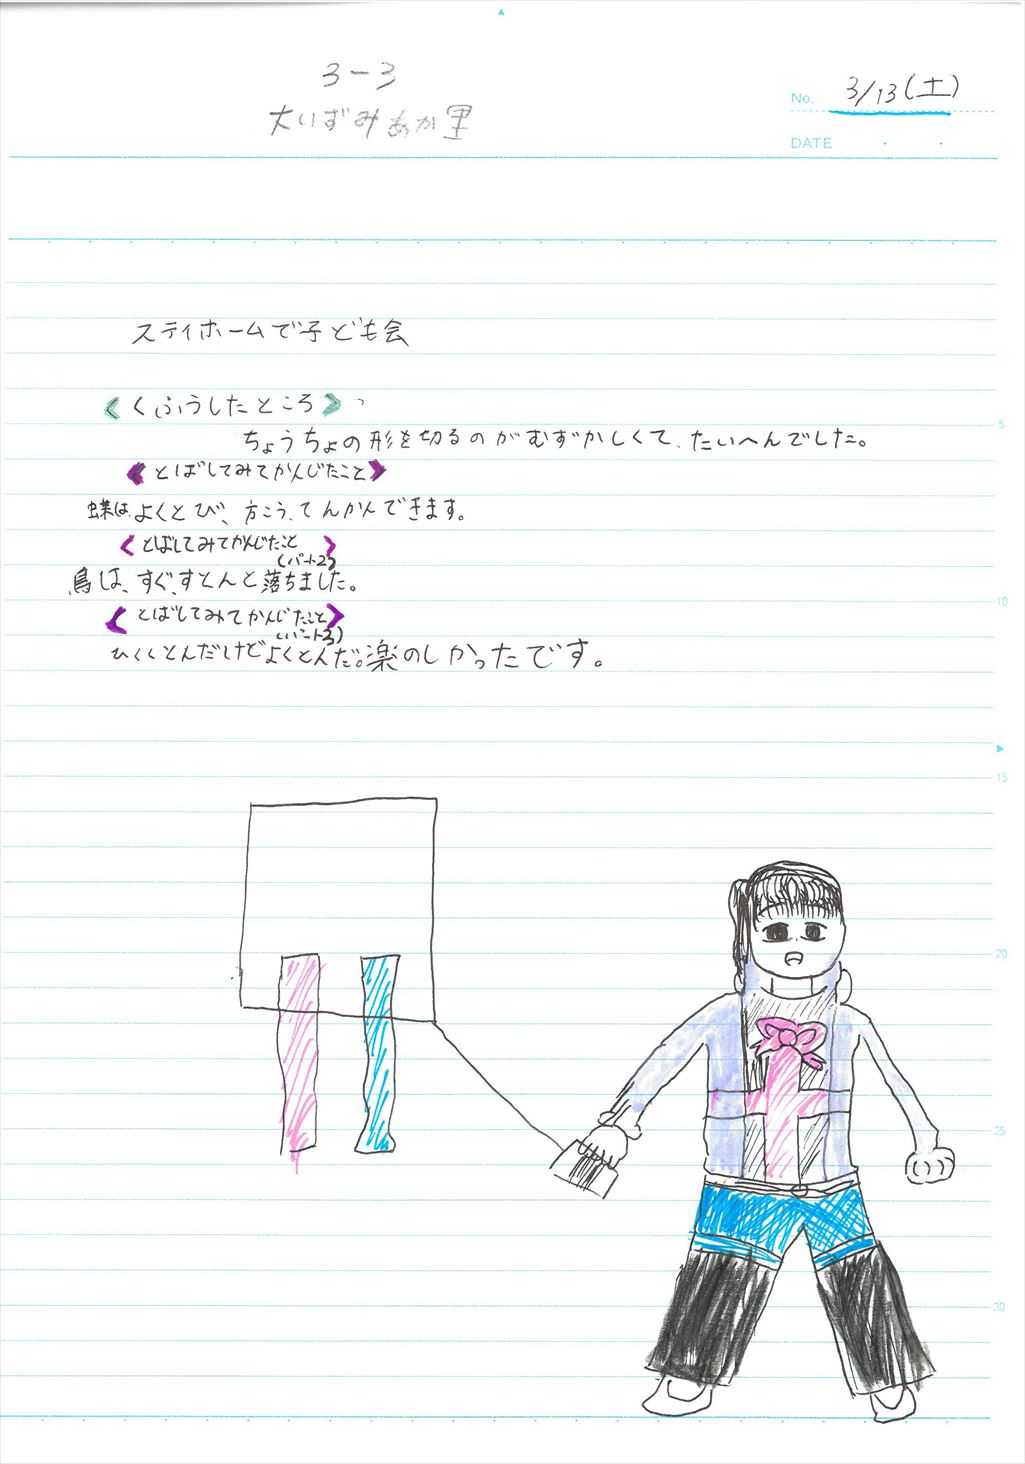 3-3
大いずみあか里
No. 3/13(土)
DATE
ステイホームで子ども会
《くふうしたところ》
ちょうちょの形を切るのがむずかしくて、たいへんでした。
《とばしてみてかんじたこと》
蝶は、よくとび、方こう、てんかんできます。
《とばしてみてかんじたこと》
(パート2)
鳥は、すぐ、すとんと落ちました。
《とばしてみてかんじたこと》
(パート3)
ひくくとんだけどよくとんだ。楽のしかったです。
5
10
15
20
25
30